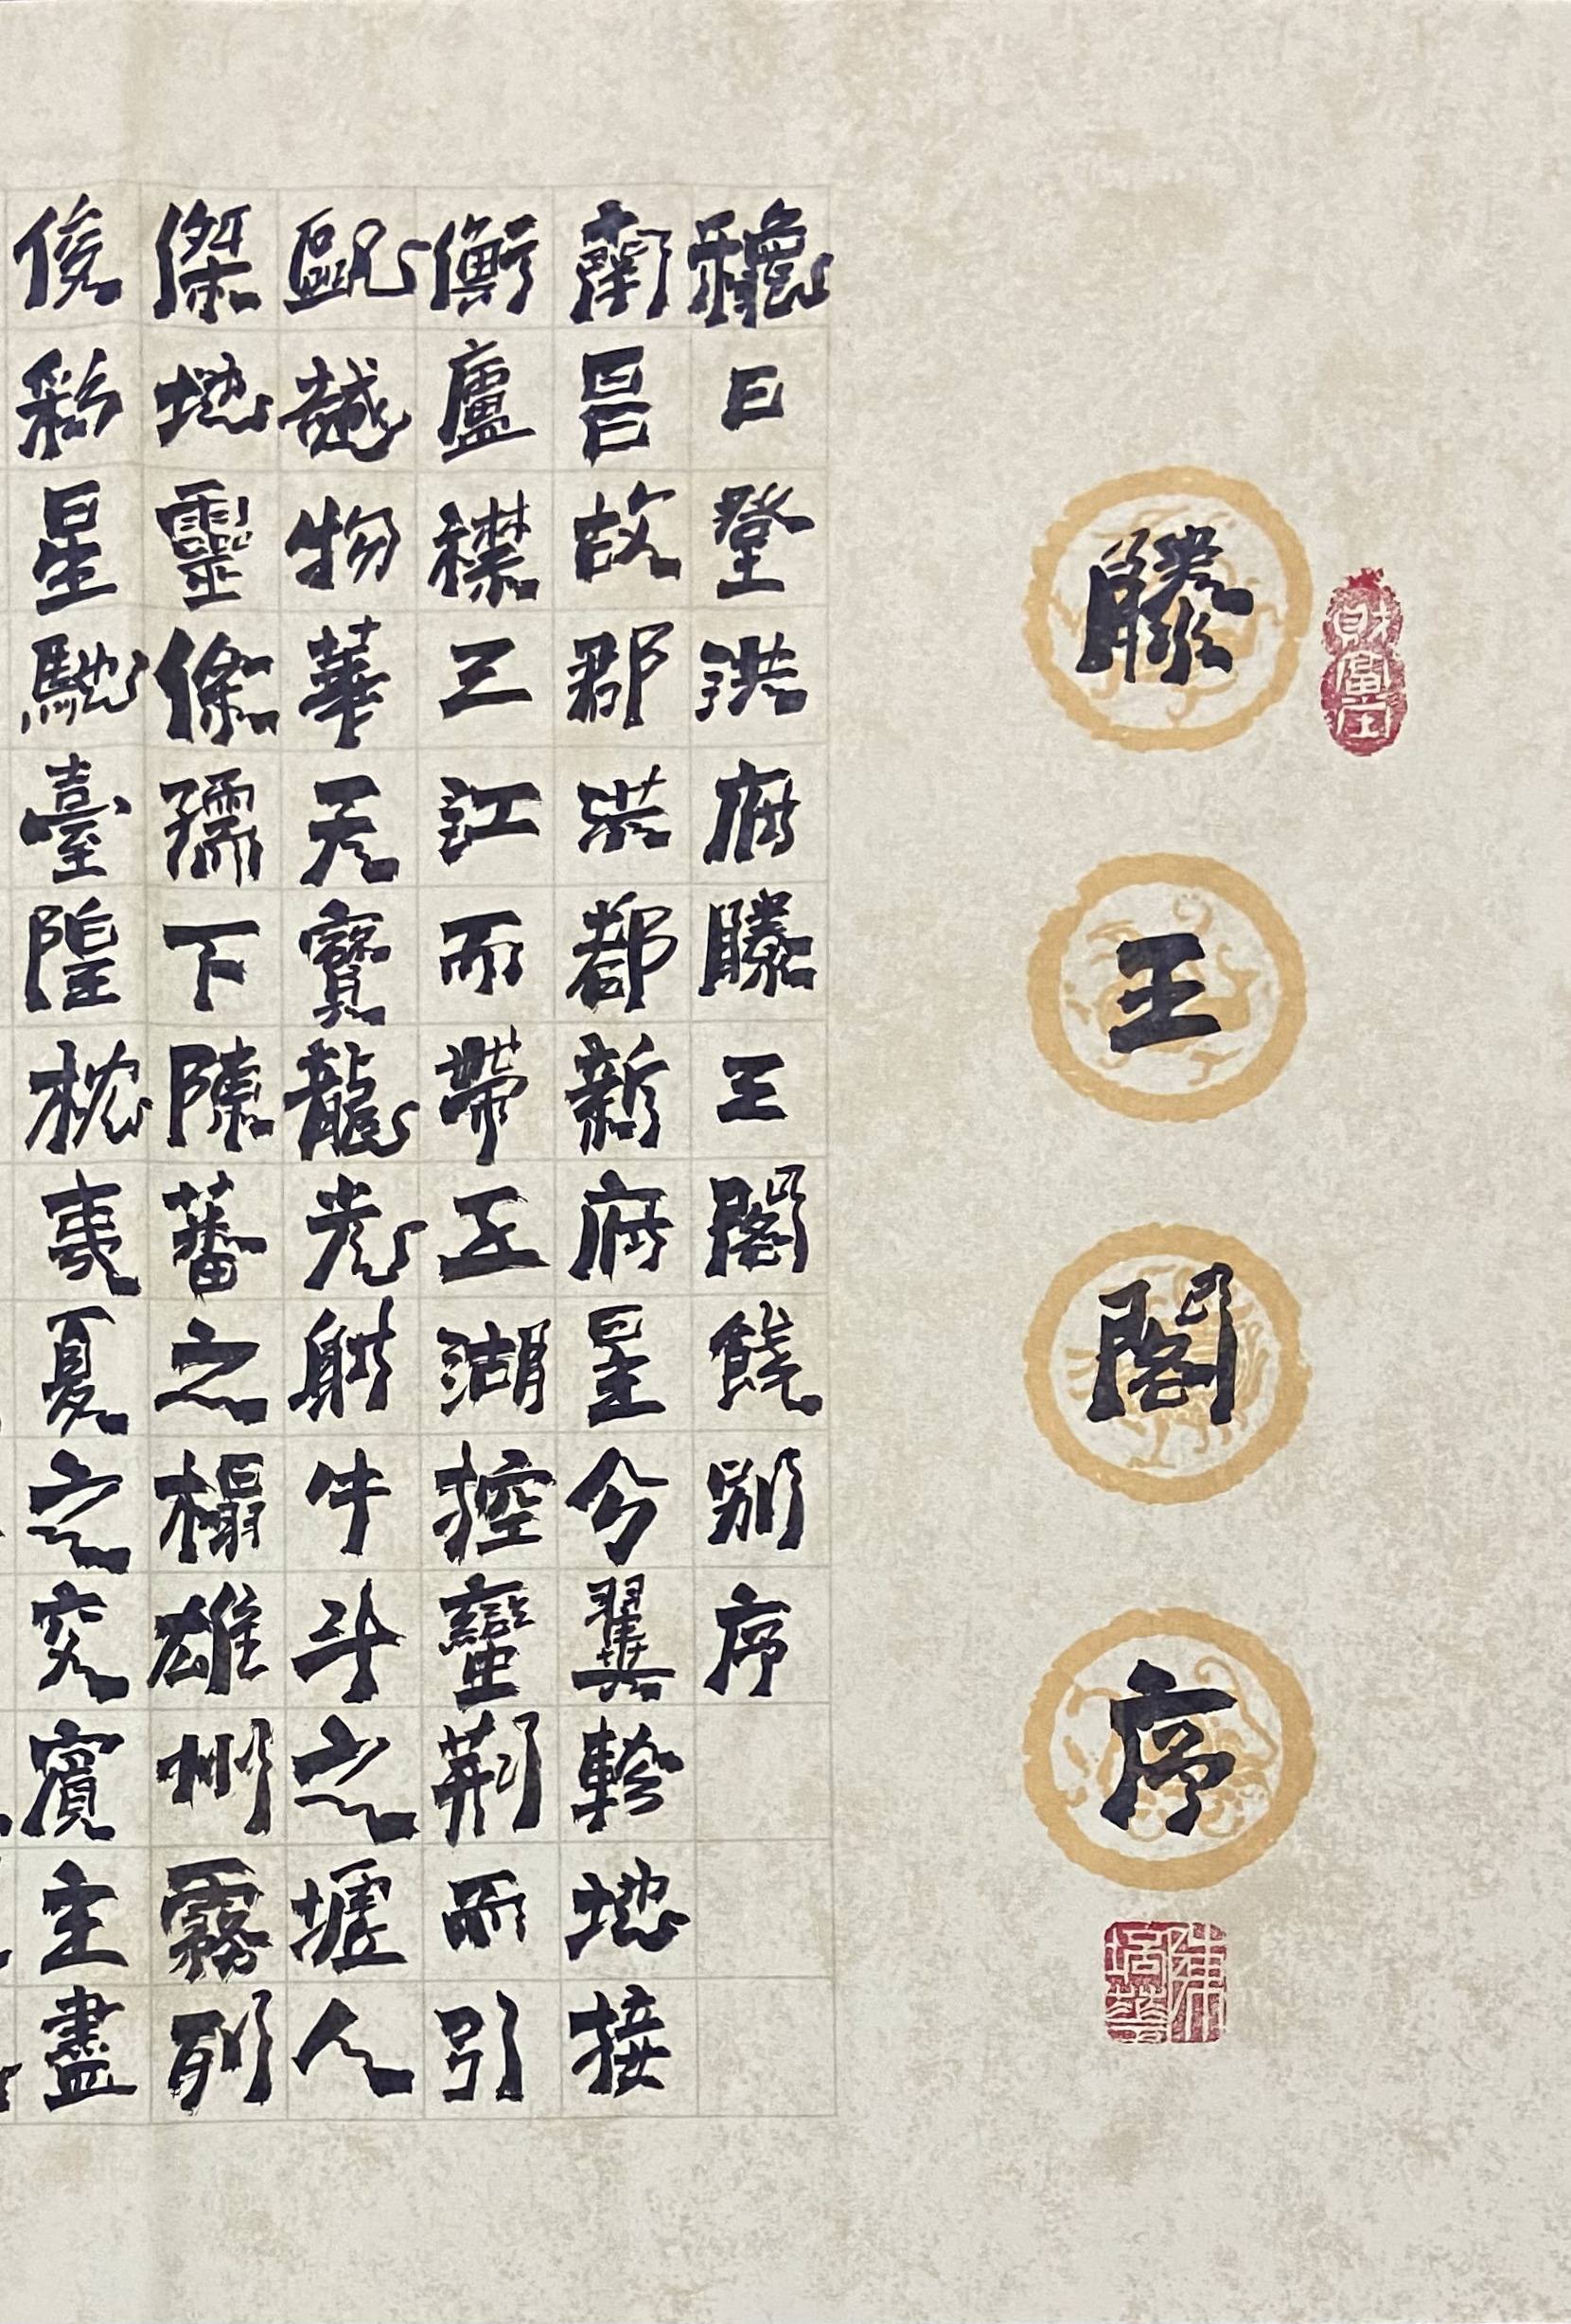 滕王閣序
龝日登洪府滕王閣餞别序
南昌故郡洪都新府星分翼軫地接
衡廬襟三江而帶五湖控蠻荊而引
甌越物華天寶龍光射牛斗之墟人
傑地靈徐孺下陳蕃之榻雄州霧列
俊彩星馳臺隍枕夷夏之交賓主盡